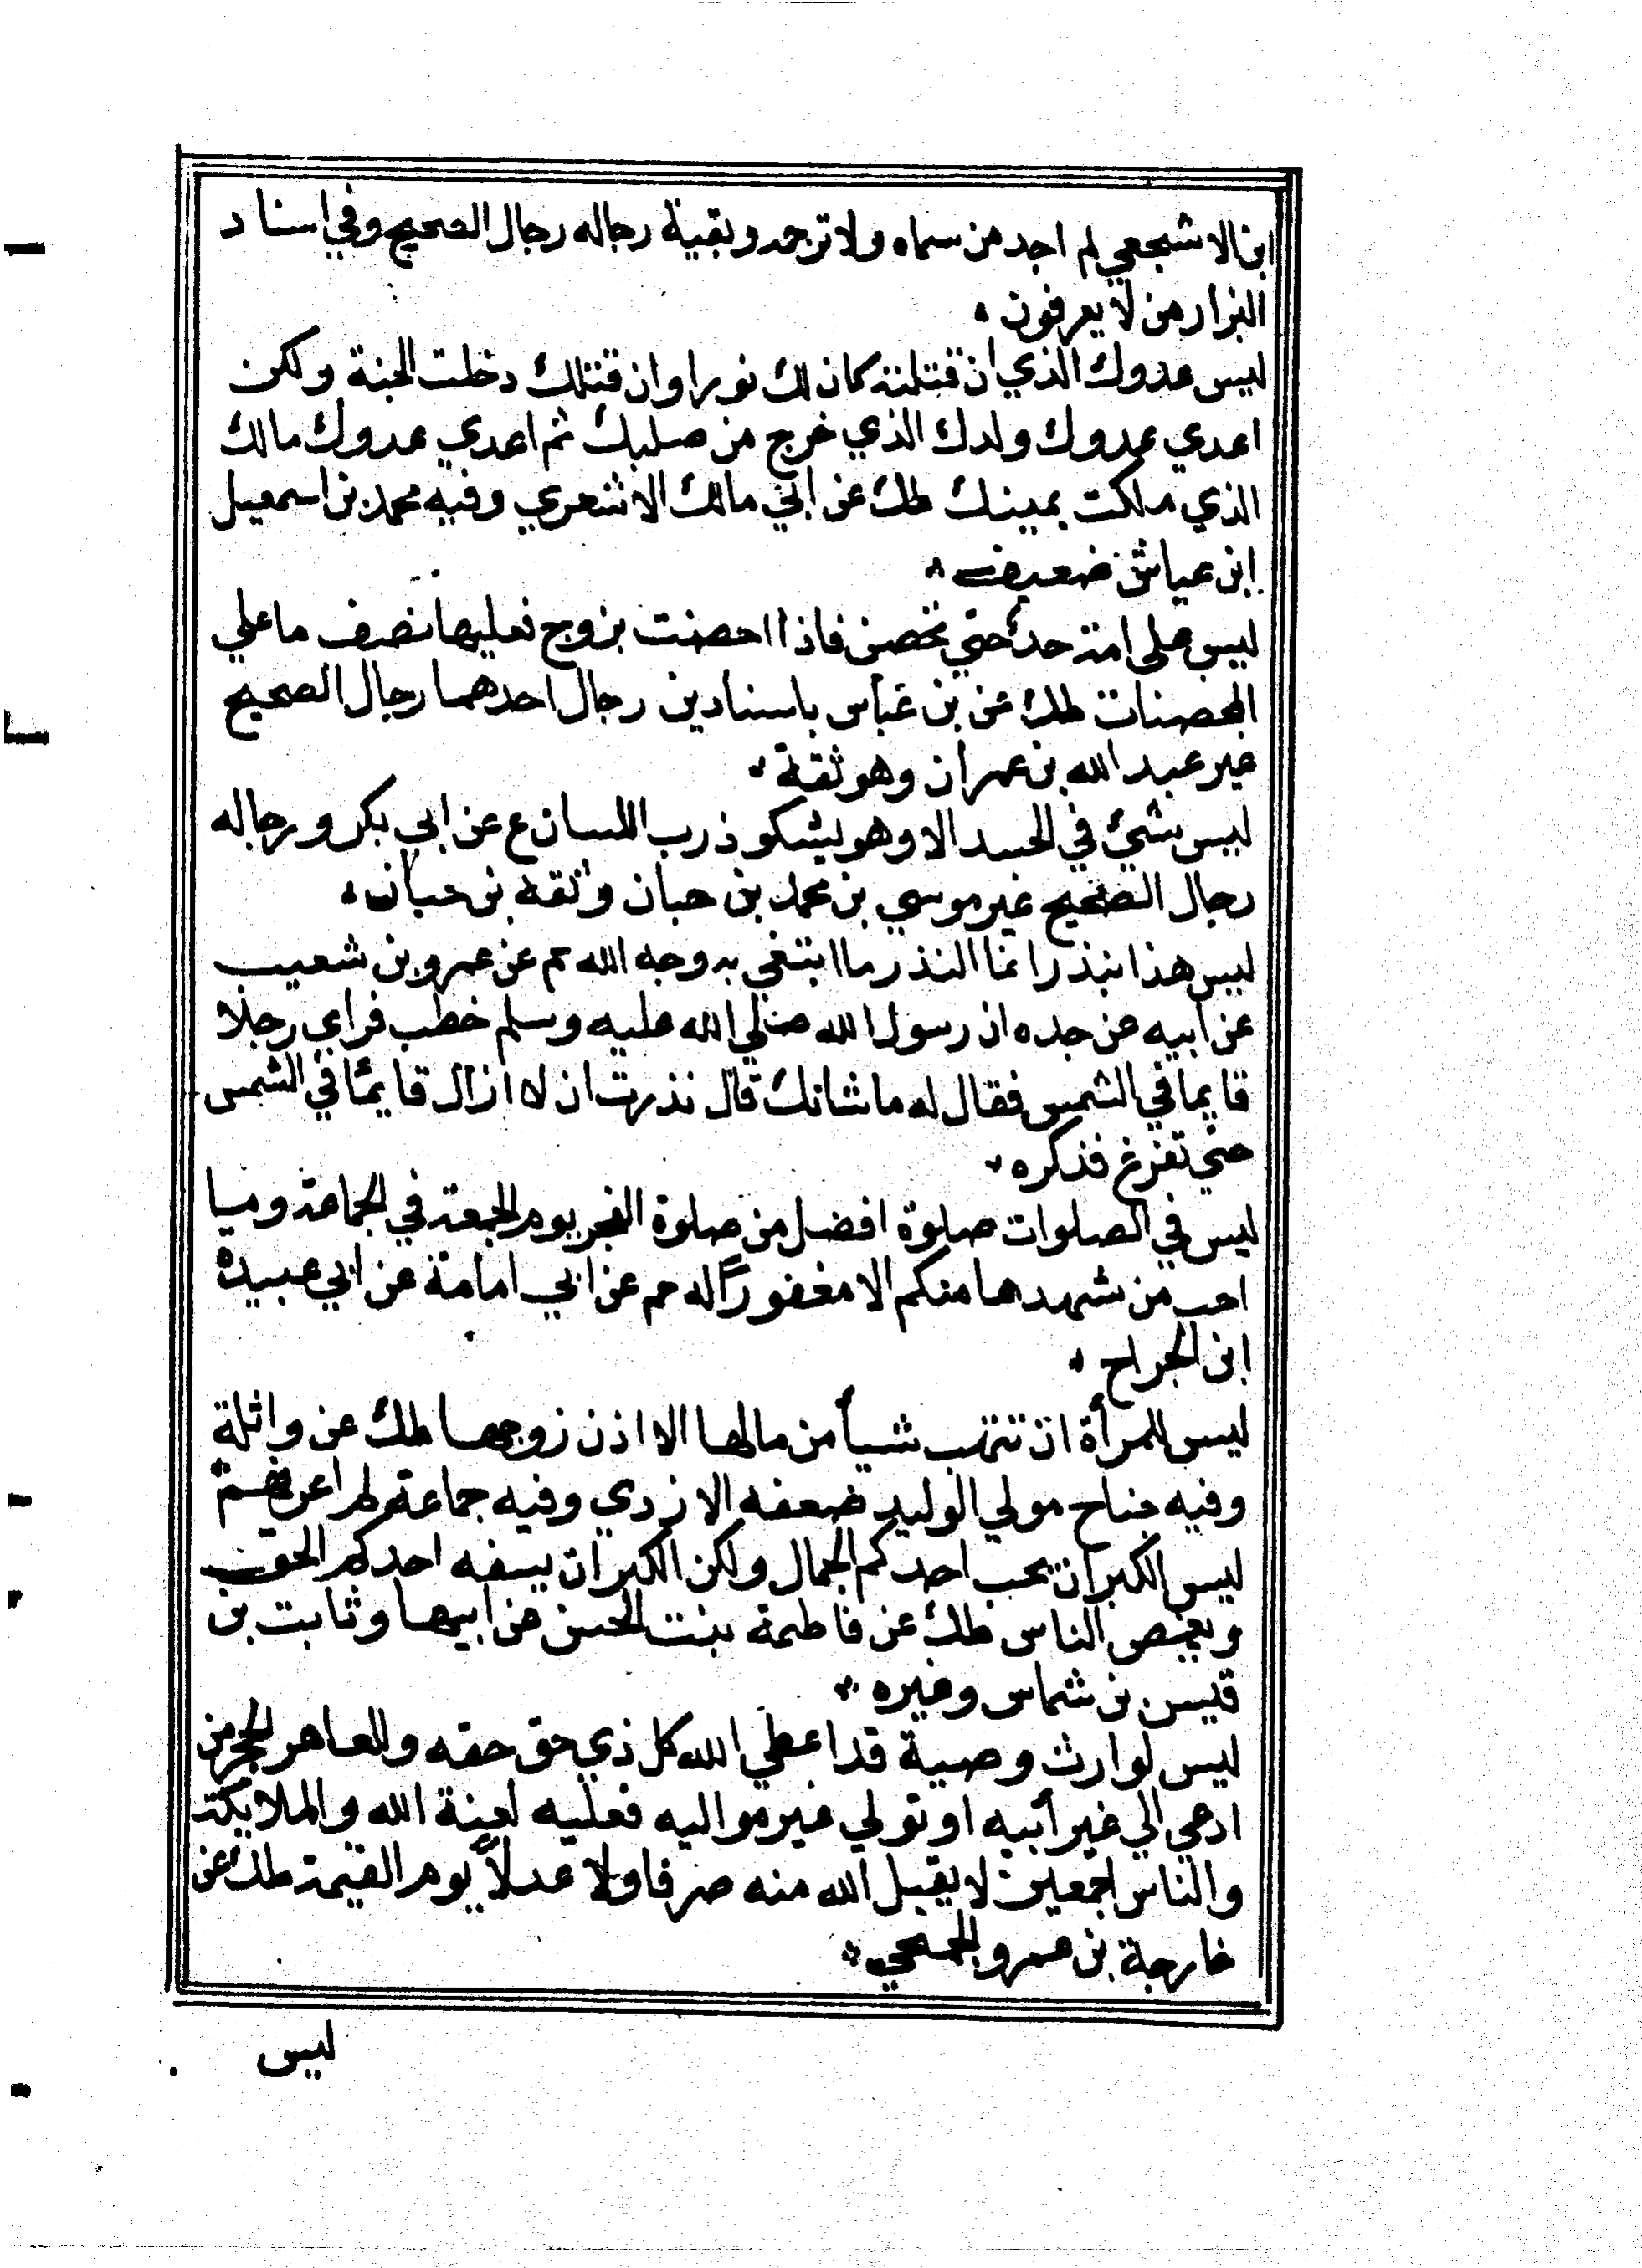 ابن الاشجعي لم اجد من سماه ولا ترجمه وبقية رجاله رجال الصحيح وفي اسناد
البزار من لا يعرفون
ليس عدوك الذي ان قتلته كان لك نورا وان قتلك دخلت الجنة ولكن
اعدي عدوك ولدك الذي خرج من صلبك ثم اعدي عدوك مالك
الذي ملكت يمينك طك عن ابي مالك الاشعري وفيه محمد بن اسمعيل
ابن عياش ضعيف
ليس على امة حد حتي تحصن فاذا احصنت بزوج فعليها نصف ما علي
المحصنات طك عن بن عباس باسنادين رجال احدهما رجال الصحيح
غير عبد الله بن عمران وهو ثقة
ليس شيئ في الجسد الا وهو يشكو ذرب اللسان ع عن ابي بكر ورجاله
رجال الصحيح غير موسي بن محمد بن حبان وثقه بن حبان
ليس هذا بنذر انما النذر ما ابتغي به وجه الله حم عن عمرو بن شعيب
عن ابيه عن جده ان رسول الله صلي الله عليه وسلم خطب فراي رجلا
قايما في الشمس فقال له ما شانك قال نذرت ان لا ازال قايمًا في الشمس
حتي تفرغ فذكره
ليس في الصلوات صلوة افضل من صلوة الفجر يوم الجمعة في الجماعة وما
احب من شهدها منكم الا مغفورًا له حم عن ابي امامة عن ابي عبيدة
ابن الجراح
ليس للمرأة ان تنتهب شيأ من مالها الا اذن زوجها طك عن واثلة
وفيه جناح مولي الوليد ضعفه الازدي وفيه جماعة لم اعرفهم
ليس الكبر ان يحب احدكم الجمال ولكن الكبر ان يسفه احدكم الحق
ويغمص الناس طك عن فاطمة بنت الحسن عن ابيها وثابت بن
قيس بن شماس وغيره
ليس لوارث وصية قد اعطي الله كل ذي حق حقه وللعاهر الحجر من
ادعي الي غير أبيه او تولي غير مواليه فعليه لعنة الله والملايكة
والناس اجمعين لا يقبل الله منه صرفا ولا عدلاً يوم القيمة طك عن
خارجة بن عمرو الجمحي
ليس